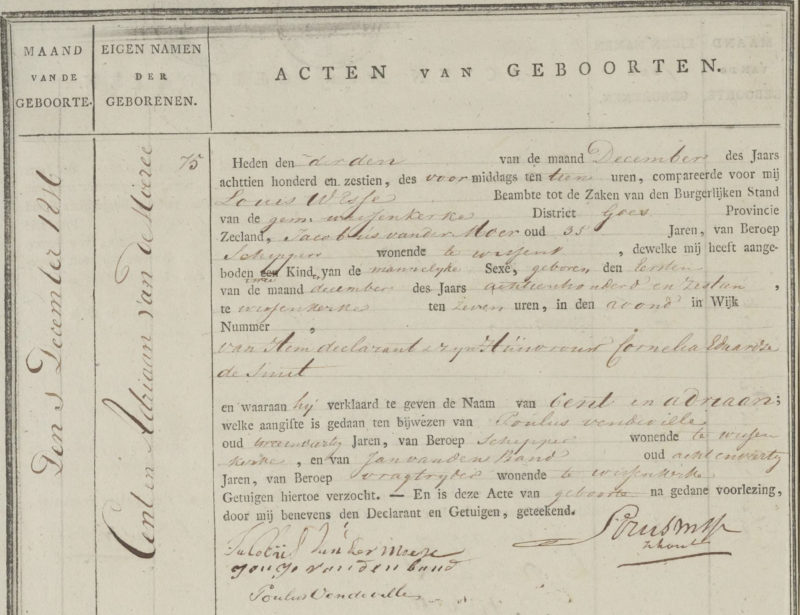 MAAND
VAN DE
GEBOORTE.
EIGEN NAMEN
DER
GEBORENEN.
ACTEN VAN GEBOORTEN.
Den 1 December 1816
Cent en Adriaan van de Moere
75
Heden den derden van de maand December des Jaars
achttien honderd en zestien, des voor middags ten tiene uren, compareerde voor mij
Louis Beambte tot de Zaken van den Burgerlijken Stand
van de gem wissenkerke District Goes Provincie
Zeeland, Jacobus van der Moer oud 35 Jaren, van Beroep
Schipper wonende te wissenk , dewelke mij heeft aange-
boden een Kind van de mannelyke Sexe, geboren den Eersten
twee
van de maand december des Jaars achttienhonderd en zestan ,
te wissenkerke ten zeven uren, in den avond in Wijk
Nummer ,
van Hem declarant & zyn Huisvrouw Cornelia Eduardse
de Smit
en waaraan hij verklaard te geven de Naam van Cent en adriaan;
welke aangifte is gedaan ten bijwezen van Poulus vendeville
oud Jaren, van Beroep Schipper wonende te wissen
kerke , en van Jan van den Band oud achtenveertig
Jaren, van Beroep vragtryder wonende te wissenkerke
Getuigen hiertoe verzocht. — En is deze Acte van geboorte na gedane voorlezing,
door mij benevens den Declarant en Getuigen, geteekend.
van der Moere
van den band
Poulus Vendeville